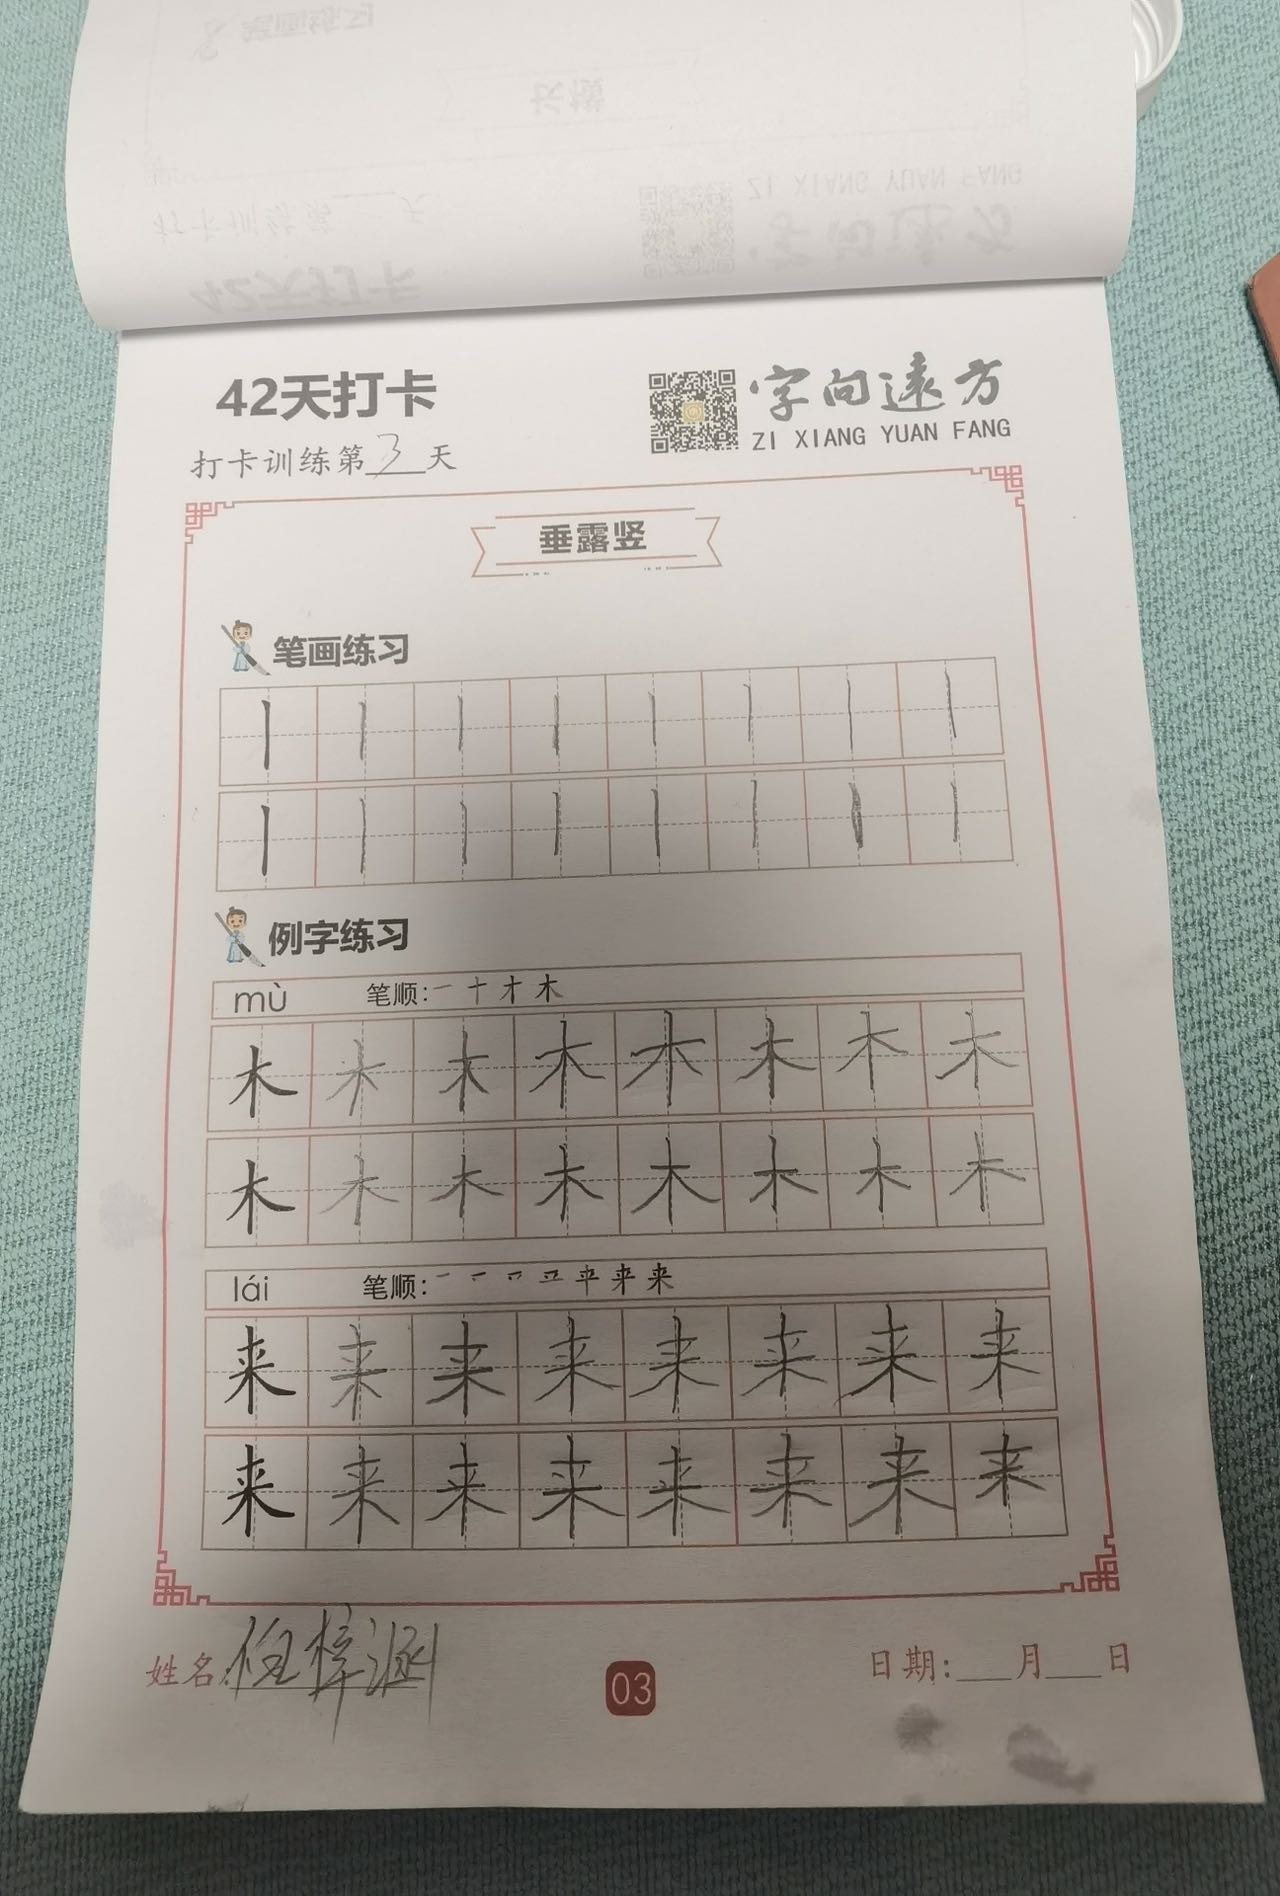 42天打卡
字向遠方
ZI XIANG YUAN FANG
打卡训练第3天
垂露竖
笔画练习
丨丨丨丨丨丨丨丨
丨丨丨丨丨丨丨丨
例字练习
mù 笔顺:一十才木
木木木木木木木木
木木木木木木木木
lái 笔顺:
来来来来来来来来
来来来来来来来来
姓名:任梓涵
03
日期:___月___日